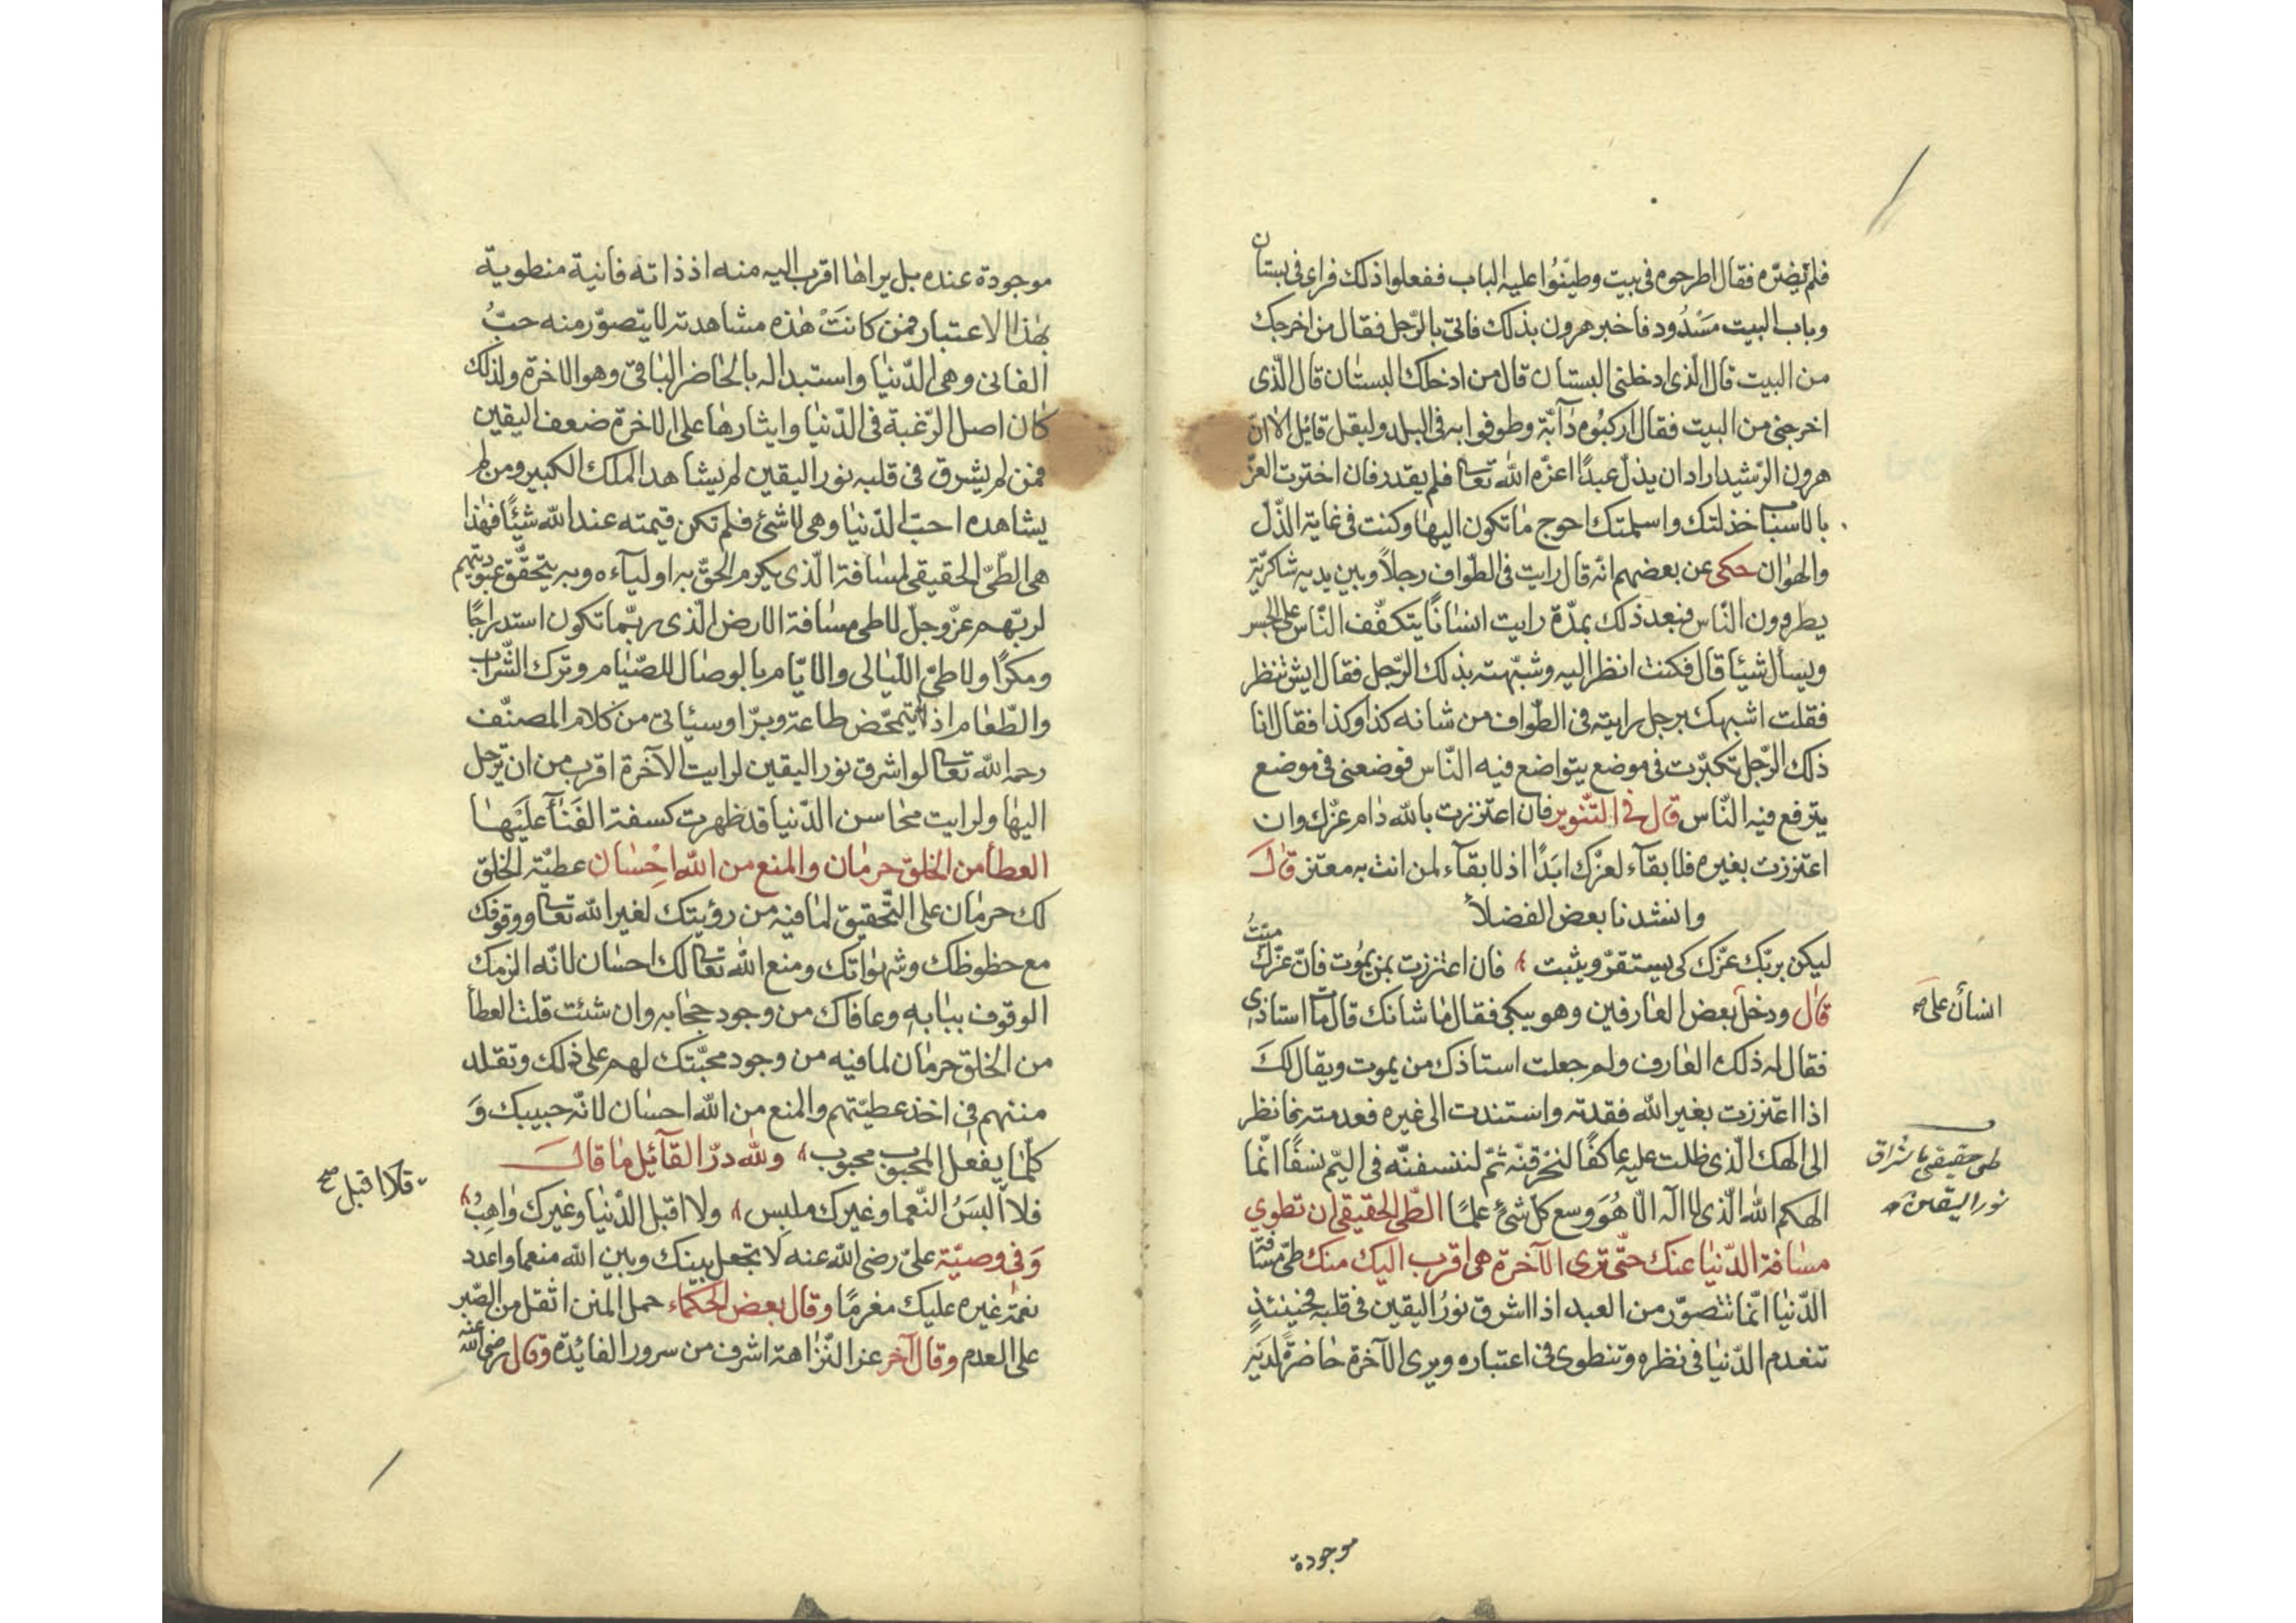 فلم يضرّه فقال اطرحوه فى بيت وطيّنوا عليه الباب ففعلوا ذلك فراى فى بستان
وباب البيت مسدُود فاخبر هرون بذلك فاتى بالرّجل فقال من اخرجك
من البيت قال الّذى ادخلنى البستان قال من ادخلك البستان قال الّذى
اخرجنى من البيت فقال اركبُوه دآبّة وطوفوا به فى البلد وليقل قائل الا انّ
هرون الرّشيد اراد ان يذلّ عبدًا اعزّه الله تعالى فلم يقدر فان اخترت العزّ
بالاسباب خذلتك واسلمتك احوج ما تكون اليها وكنت فى غاية الذّلّ
والهوان حكى عن بعضهم انّه قال رايت فى الطّواف رجلاً وبين يديه شاكريّة
يطردون النّاس فبعد ذلك بمدّة رايت انسانًا يتكفّف النّاس على الجسر
ويسأل شيئا قال فكنت انظر اليه وشبّهته بذلك الرّجل فقال ايش تنظر
فقلت اشبهك برجل رايته فى الطّواف من شانه كذا وكذا فقال انا
ذلك الرّجل تكبّرت فى موضع يتواضع فيه النّاس فوضعنى فى موضع
يترفع فيه النّاس قال فى التّنوير فان اعتززت بالله دام عزّك وان
اعتززت بغيره فلا بقآء لعزّك ابَدًا اذ لا بقآء لمن انت به معتز قال
وانشدنا بعض الفضلاء
ليكن بربّك عزّك كى يستقرّ ويثبت فان اعتززت بمن يموت فانّ عزّك ميّتُ
قال ودخل بعض العارفين وهو يبكى فقال ما شانك قال مات استاذى
انسان على صح
فقال له ذلك العارف ولم جعلت استاذك من يموت ويقال لكَ
اذا اعتززت بغير الله فقدته واستندت الى غيره فعدمته فانظر
الى الهك الّذى ظلت عليه عاكفًا لنحرقنّه ثمّ لننسفنّه فى اليّم نسفًا انّما
طى حقيقى باشراق
نور اليقين
الهكم الله الّذى لا اله الّا هُوَ وسع كلّ شئ علمًا الطّى الحقيقى ان تطوى
مسافة الدّنيا عنك حتّى ترى الآخرة هى اقرب اليك منك طىّ مسافة
الدّنيا انّما تتصوّر من العبد اذا اشرق نورُ اليقين فى قلبه فحينئذٍ
تنعدم الدّنيا فى نظره وتنطوى فى اعتباره ويرى الآخرة حاضرةً لديه
موجودة
موجودة عنده بل يراها اقرب اليه منه اذ ذاته فانية منطوية
بهذا الاعتبار فمن كانتْ هذه مشاهدته لا يتصوّر منه حبُّ
الفانى وهى الدّنيا واستبداله بالحاضر الباقى وهو الاخرة ولذلك
كان اصل الرّغبة فى الدّنيا وايثارها على الاخرة ضعف اليقين
فمن لم يشرق فى قلبه نور اليقين لم يشاهد الملك الكبير ومن لم
يشاهده احبّ الدّنيا وهى لا شئ فلم تكن قيمته عند الله شيئًا فهذا
هى الطّىّ الحقيقى لمسافة الّذى يكرم الحقّ به اولياءه وبه يتحقّق عبوديّتهم
لربّهم عزّ وجلّ لا طى مسافة الارض الّذى ربّما تكون استدراجًا
ومكرًا ولا طىّ اللّيالى والايّام بالوصال للصّيام وترك الشّراب
والطّعام اذ لم يتمحّض طاعة وبرّا وسيأتى من كلام المصنّف
رحمه الله تعالى لو اشرق نور اليقين لرايت الآخرة اقرب من ان ترحل
اليها ولرايت محاسن الدّنيا قد ظهرت كسفة الفنآء عليها
العطأ من الخلق حرمان والمنع من الله احْسان عطيّة الخلق
لك حرمان على التّحقيق لما فيه من رؤيتك لغير الله تعالى ووقوفك
مع حظوظك وشهواتك ومنع الله تعالى لك احسان لانّه الزمك
الوقوف ببابه وعافاك من وجود حجابه وان شئت قلت العطأ
من الخلق حرمان لما فيه من وجود محبّتك لهم على ذلك وتقلد
مننهم فى اخذ عطيّتهم والمنع من الله احسان لانّه حبيبك وَ
كلّما يفعل المحبوب محبوب ولله درّ القآئل ما قال
فلا اَلبسَنُ النّعما وغيرك ملبس ولا اقبل الدّنيا وغيرك واهبُ
فلا اقبل صح
وَفى وصيّة علىّ رضى الله عنه لا تجعل بينك وبين الله منعما واعدد
نعمة غيره عليك مغرمًا وقال بعض الحكماء حمل المنن اثقل من الصّبر
على العدم وقال آخر عز النّزاهة اشرف من سرور الفائدة وقال رضى الله عنه